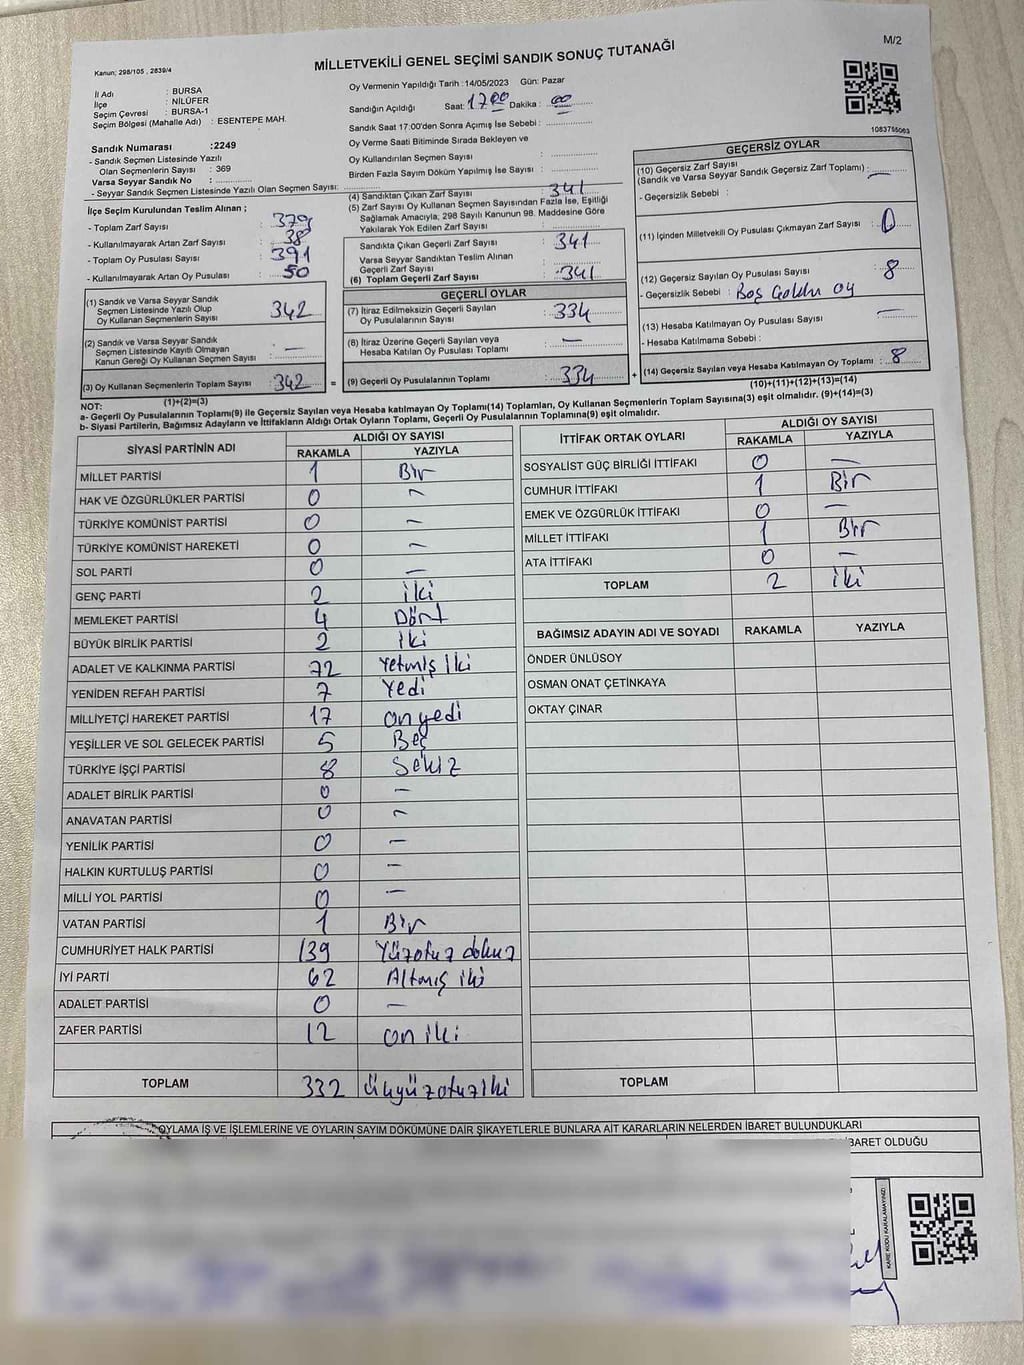 M/2
MİLLETVEKİLİ GENEL SEÇİMİ SANDIK SONUÇ TUTANAĞI
Kanun; 298/105 , 2839/4
İl Adı : BURSA
İlçe : NİLÜFER
Seçim Çevresi : BURSA-1
Seçim Bölgesi (Mahalle Adı) : ESENTEPE MAH.
Sandık Numarası :2249
- Sandık Seçmen Listesinde Yazılı
Olan Seçmenlerin Sayısı : 369
Varsa Seyyar Sandık No :
- Seyyar Sandık Seçmen Listesinde Yazılı Olan Seçmen Sayısı:
Oy Vermenin Yapıldığı Tarih :14/05/2023 Gün: Pazar
Sandığın Açıldığı Saat: 17:00 Dakika : 00
Sandık Saat 17:00'den Sonra Açımış İse Sebebi :
Oy Verme Saati Bitiminde Sırada Bekleyen ve
Oy Kullandırılan Seçmen Sayısı :
Birden Fazla Sayım Döküm Yapılmış İse Sayısı :
1083755063
İlçe Seçim Kurulundan Teslim Alınan ;
- Toplam Zarf Sayısı : 379
- Kullanılmayarak Artan Zarf Sayısı : 38
- Toplam Oy Pusulası Sayısı : 391
- Kullanılmayarak Artan Oy Pusulası : 50
(1) Sandık ve Varsa Seyyar Sandık
Seçmen Listesinde Yazılı Olup
Oy Kullanan Seçmenlerin Sayısı 342
(2) Sandık ve Varsa Seyyar Sandık
Seçmen Listesinde Kayıtlı Olmayan
Kanun Gereği Oy Kullanan Seçmen Sayısı : —
(3) Oy Kullanan Seçmenlerin Toplam Sayısı : 342 =
(1)+(2)=(3)
(4) Sandıktan Çıkan Zarf Sayısı : 341
(5) Zarf Sayısı Oy Kullanan Seçmen Sayısından Fazla İse, Eşitliği
Sağlamak Amacıyla; 298 Sayılı Kanunun 98. Maddesine Göre
Yakılarak Yok Edilen Zarf Sayısı :
Sandıkta Çıkan Geçerli Zarf Sayısı : 341
Varsa Seyyar Sandıktan Teslim Alınan
Geçerli Zarf Sayısı :
(6) Toplam Geçerli Zarf Sayısı : 341
GEÇERLİ OYLAR
(7) İtiraz Edilmeksizin Geçerli Sayılan
Oy Pusulalarının Sayısı : 334
(8) İtiraz Üzerine Geçerli Sayılan veya
Hesaba Katılan Oy Pusulası Toplamı : —
(9) Geçerli Oy Pusulalarının Toplamı : 334 +
GEÇERSİZ OYLAR
(10) Geçersiz Zarf Sayısı
(Sandık ve Varsa Seyyar Sandık Geçersiz Zarf Toplamı) : —
- Geçersizlik Sebebi :
(11) İçinden Milletvekili Oy Pusulası Çıkmayan Zarf Sayısı : 0
(12) Geçersiz Sayılan Oy Pusulası Sayısı : 8
- Geçersizlik Sebebi : Boş
(13) Hesaba Katılmayan Oy Pusulası Sayısı : —
- Hesaba Katılmama Sebebi :
(14) Geçersiz Sayılan veya Hesaba Katılmayan Oy Toplamı : 8
(10)+(11)+(12)+(13)=(14)
NOT:
a- Geçerli Oy Pusulalarının Toplamı(9) ile Geçersiz Sayılan veya Hesaba katılmayan Oy Toplamı(14) Toplamları, Oy Kullanan Seçmenlerin Toplam Sayısına(3) eşit olmalıdır. (9)+(14)=(3)
b- Siyasi Partilerin, Bağımsız Adayların ve İttifakların Aldığı Ortak Oyların Toplamı, Geçerli Oy Pusulalarının Toplamına(9) eşit olmalıdır.
SİYASİ PARTİNİN ADI ALDIĞI OY SAYISI
RAKAMLA YAZIYLA
MİLLET PARTİSİ 1 Bir
HAK VE ÖZGÜRLÜKLER PARTİSİ 0 —
TÜRKİYE KOMÜNİST PARTİSİ 0 —
TÜRKİYE KOMÜNİST HAREKETİ 0 —
SOL PARTİ 0 —
GENÇ PARTİ 2 iki
MEMLEKET PARTİSİ 4 Dört
BÜYÜK BİRLİK PARTİSİ 2 iki
ADALET VE KALKINMA PARTİSİ 72 Yetmiş iki
YENİDEN REFAH PARTİSİ 7 Yedi
MİLLİYETÇİ HAREKET PARTİSİ 17 on yedi
YEŞİLLER VE SOL GELECEK PARTİSİ 5 Beş
TÜRKİYE İŞÇİ PARTİSİ 8 Sekiz
ADALET BİRLİK PARTİSİ 0 —
ANAVATAN PARTİSİ 0 —
YENİLİK PARTİSİ 0 —
HALKIN KURTULUŞ PARTİSİ 0 —
MİLLİ YOL PARTİSİ 0 —
VATAN PARTİSİ 1 Bir
CUMHURİYET HALK PARTİSİ 139 Yüzotuz dokuz
İYİ PARTİ 62 Altmış iki
ADALET PARTİSİ 0 —
ZAFER PARTİSİ 12 on iki
TOPLAM 332 üçyüzotuziki
İTTİFAK ORTAK OYLARI ALDIĞI OY SAYISI
RAKAMLA YAZIYLA
SOSYALİST GÜÇ BİRLİĞİ İTTİFAKI 0 —
CUMHUR İTTİFAKI 1 Bir
EMEK VE ÖZGÜRLÜK İTTİFAKI 0 —
MİLLET İTTİFAKI 1 Bir
ATA İTTİFAKI 0 —
TOPLAM 2 iki
BAĞIMSIZ ADAYIN ADI VE SOYADI RAKAMLA YAZIYLA
ÖNDER ÜNLÜSOY
OSMAN ONAT ÇETİNKAYA
OKTAY ÇINAR
TOPLAM
OYLAMA İŞ VE İŞLEMLERİNE VE OYLARIN SAYIM DÖKÜMÜNE DAİR ŞİKAYETLERLE BUNLARA AİT KARARLARIN NELERDEN İBARET BULUNDUKLARI
BARET OLDUĞU
KARE KODU KARALAMAYINIZ!